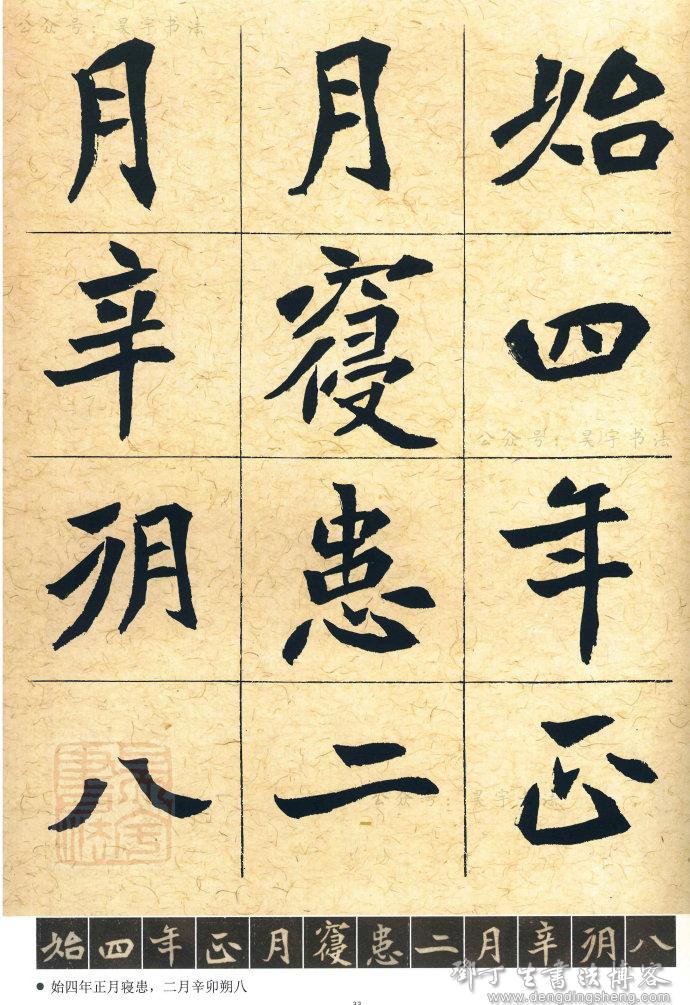 公众号：昊宇书法
始四年正
月寝患二
月辛朔八
公众号：昊宇书法
公众号：昊宇书法
始四年正月寝患二月辛朔八
● 始四年正月寝患，二月辛卯朔八
33
邓丁生书法博客
www.dengdingsheng.com